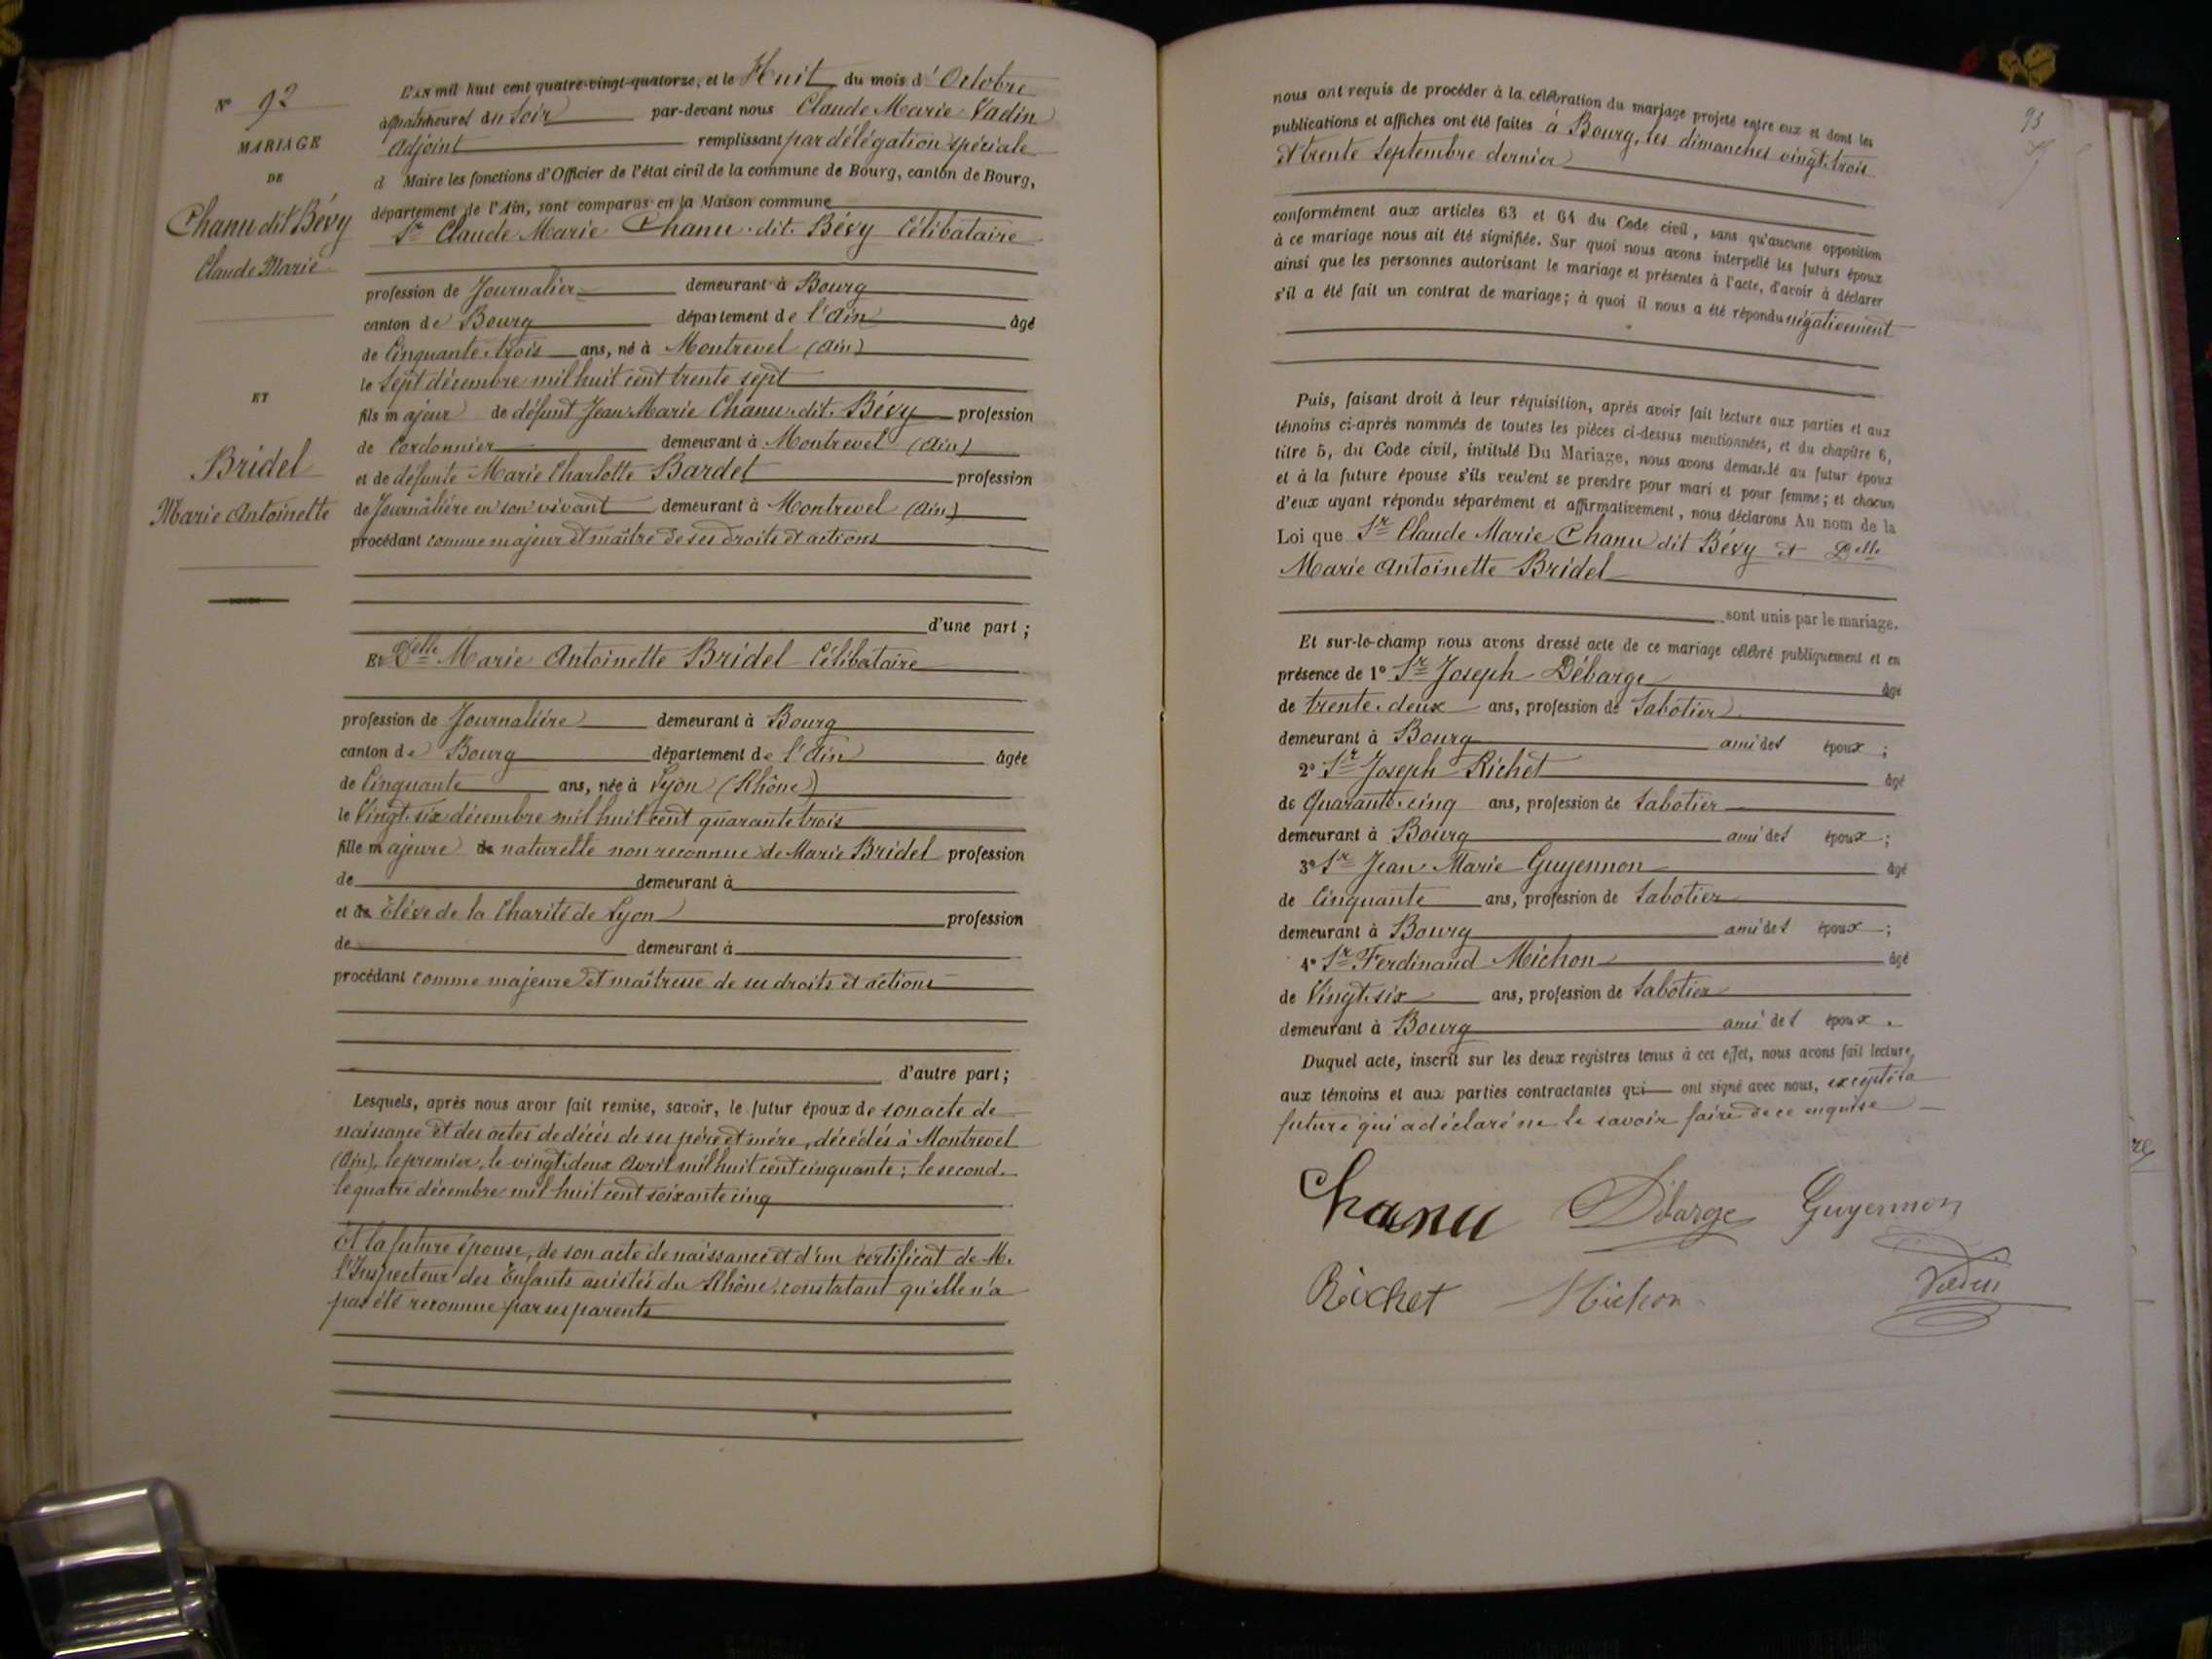 N° 92
MARIAGE
DE
Chanu dit Bévy
Claude Marie
ET
Bridel
Marie Antoinette
L'AN mil huit cent quatre-vingt-quatorze, et le Huit du mois d'Octobre
à quatre heures du Soir par-devant nous Claude Marie Vadin
Adjoint remplissant par délégation spéciale
d Maire les fonctions d'Officier de l'état civil de la commune de Bourg, canton de Bourg,
département de l'Ain, sont comparus en la Maison commune
Sr Claude Marie Chanu dit Bévy Célibataire
profession de Journalier demeurant à Bourg
canton de Bourg département de l'Ain âgé
de Cinquante trois ans, né à Montrevel (Ain)
le Sept décembre mil huit cent trente sept
fils majeur de défunt Jean Marie Chanu dit Bévy profession
de Cordonnier demeurant à Montrevel (Ain)
et de défunte Marie Charlotte Bardet profession
de Journalière en son vivant demeurant à Montrevel (Ain)
procédant comme majeur et maître de ses droits et actions
d'une part ;
Et Delle Marie Antoinette Bridel Célibataire
profession de Journalière demeurant à Bourg
canton de Bourg département de l'Ain âgée
de Cinquante ans, née à Lyon (Rhône)
le Vingt six décembre mil huit cent quarante trois
fille majeure de naturelle non reconnue de Marie Bridel profession
de demeurant à
et de Elève de la Charité de Lyon profession
de demeurant à
procédant comme majeure et maîtresse de ses droits et actions
d'autre part ;
Lesquels, après nous avoir fait remise, savoir, le futur époux de son acte de
naissance et des actes de décès de ses père et mère, décédés à Montrevel
(Ain), le premier, le vingt deux Avril mil huit cent cinquante ; le second
le quatre décembre mil huit cent soixante cinq
Et la future épouse, de son acte de naissance et d'un certificat de M.
l'Inspecteur des Enfants assistés du Rhône, constatant qu'elle n'a
pas été reconnue par ses parents
93
nous ont requis de procéder à la célébration du mariage projeté entre eux et dont les
publications et affiches ont été faites à Bourg, les dimanches vingt-trois
et trente Septembre dernier
conformément aux articles 63 et 64 du Code civil, sans qu'aucune opposition
à ce mariage nous ait été signifiée. Sur quoi nous avons interpellé les futurs époux
ainsi que les personnes autorisant le mariage et présentes à l'acte, d'avoir à déclarer
s'il a été fait un contrat de mariage ; à quoi il nous a été répondu négativement
Puis, faisant droit à leur réquisition, après avoir fait lecture aux parties et aux
témoins ci-après nommés de toutes les pièces ci-dessus mentionnées, et du chapitre 6,
titre 5, du Code civil, intitulé Du Mariage, nous avons demandé au futur époux
et à la future épouse s'ils veulent se prendre pour mari et pour femme ; et chacun
d'eux ayant répondu séparément et affirmativement, nous déclarons Au nom de la
Loi que Sr Claude Marie Chanu dit Bévy et Delle
Marie Antoinette Bridel
sont unis par le mariage.
Et sur-le-champ nous avons dressé acte de ce mariage célébré publiquement et en
présence de 1° Sr Joseph Débarge âgé
de trente-deux ans, profession de Sabotier
demeurant à Bourg ami des époux ;
2° Sr Joseph Richet âgé
de Quarante-cinq ans, profession de Sabotier
demeurant à Bourg ami des époux ;
3° Sr Jean Marie Guyennon âgé
de Cinquante ans, profession de Sabotier
demeurant à Bourg ami des époux ;
4° Sr Ferdinand Michon âgé
de Vingt six ans, profession de Sabotier
demeurant à Bourg ami des époux .
Duquel acte, inscrit sur les deux registres tenus à cet effet, nous avons fait lecture,
aux témoins et aux parties contractantes qui ont signé avec nous, excepté la
future qui a déclaré ne le savoir faire de ce enquise
Chanu Débarge Guyennon
Richet Michon Vadin